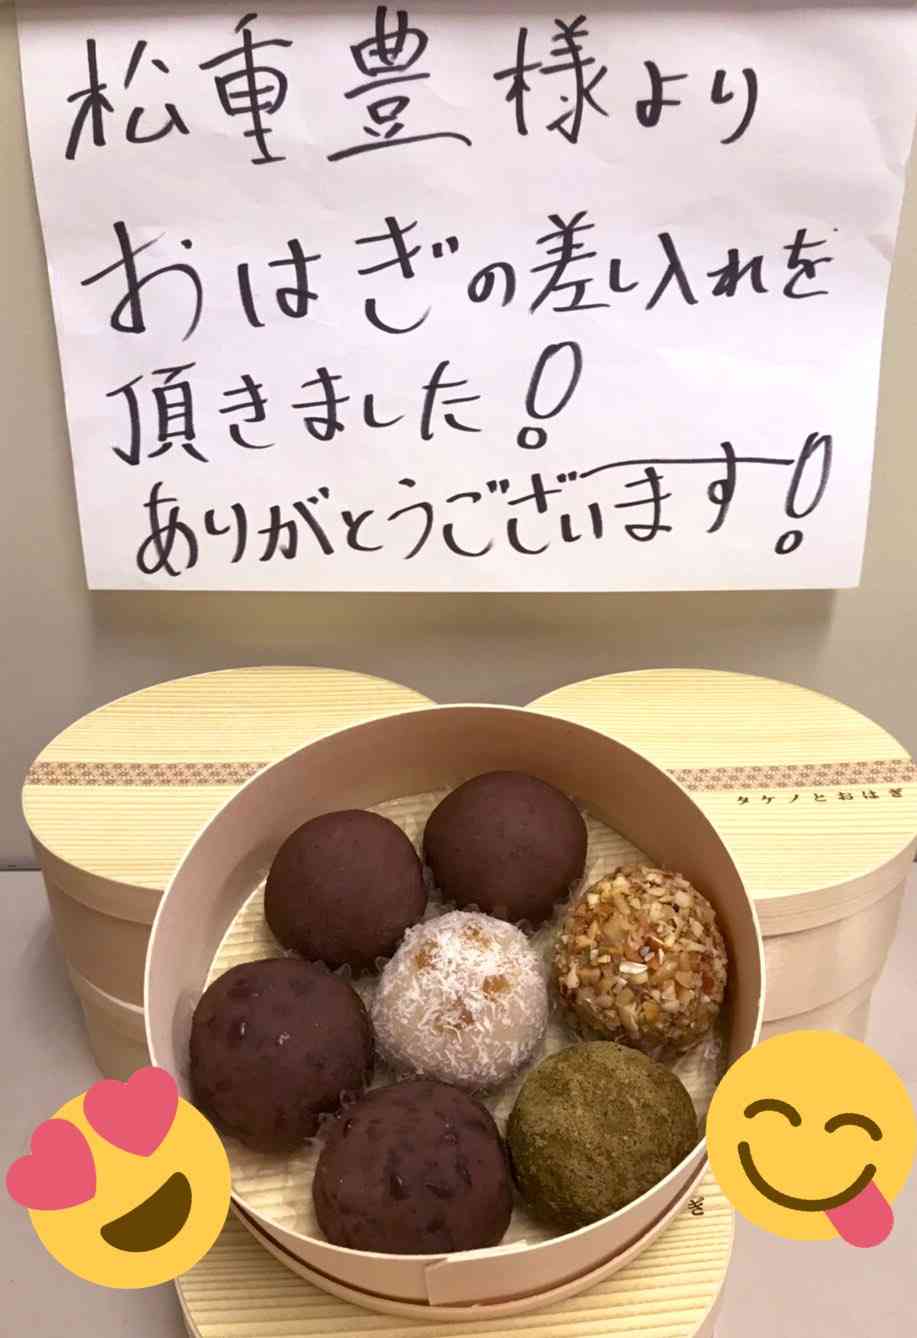 松重豊様より
おはぎの差し入れを
頂きました!
ありがとうございます!
タケノとおはぎ
ぎ